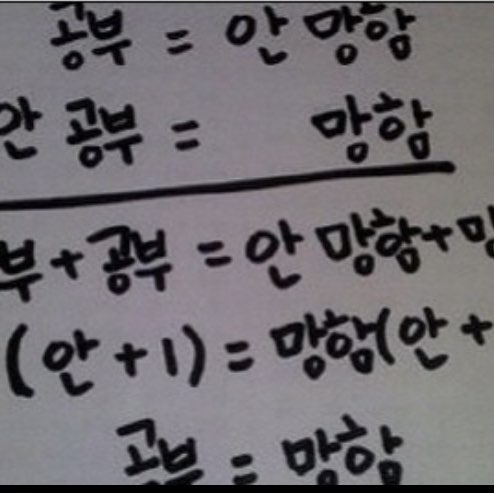 공부 = 안 망함
안 공부 = 망함
부+공부 = 안 망함+망
(안+1) = 망함(안+
공부 = 망함